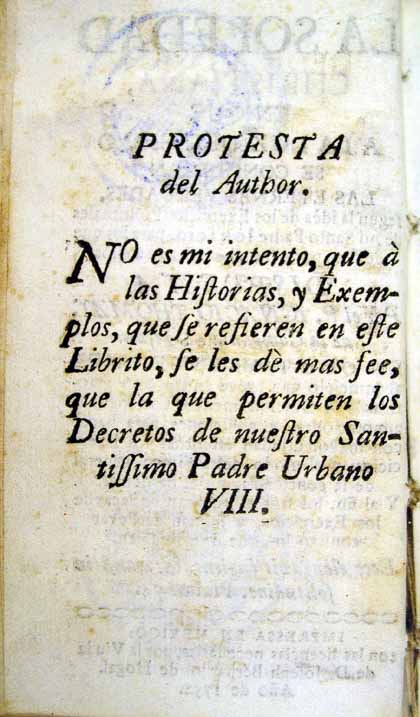 PROTESTA
del Author.
NO es mi intento, que à
las Hiſtorias, y Exem-
plos, que ſe refieren en eſte
Librito, ſe les dè mas fee,
que la que permiten los
Decretos de nueſtro San-
tiſſimo Padre Urbano
VIII.